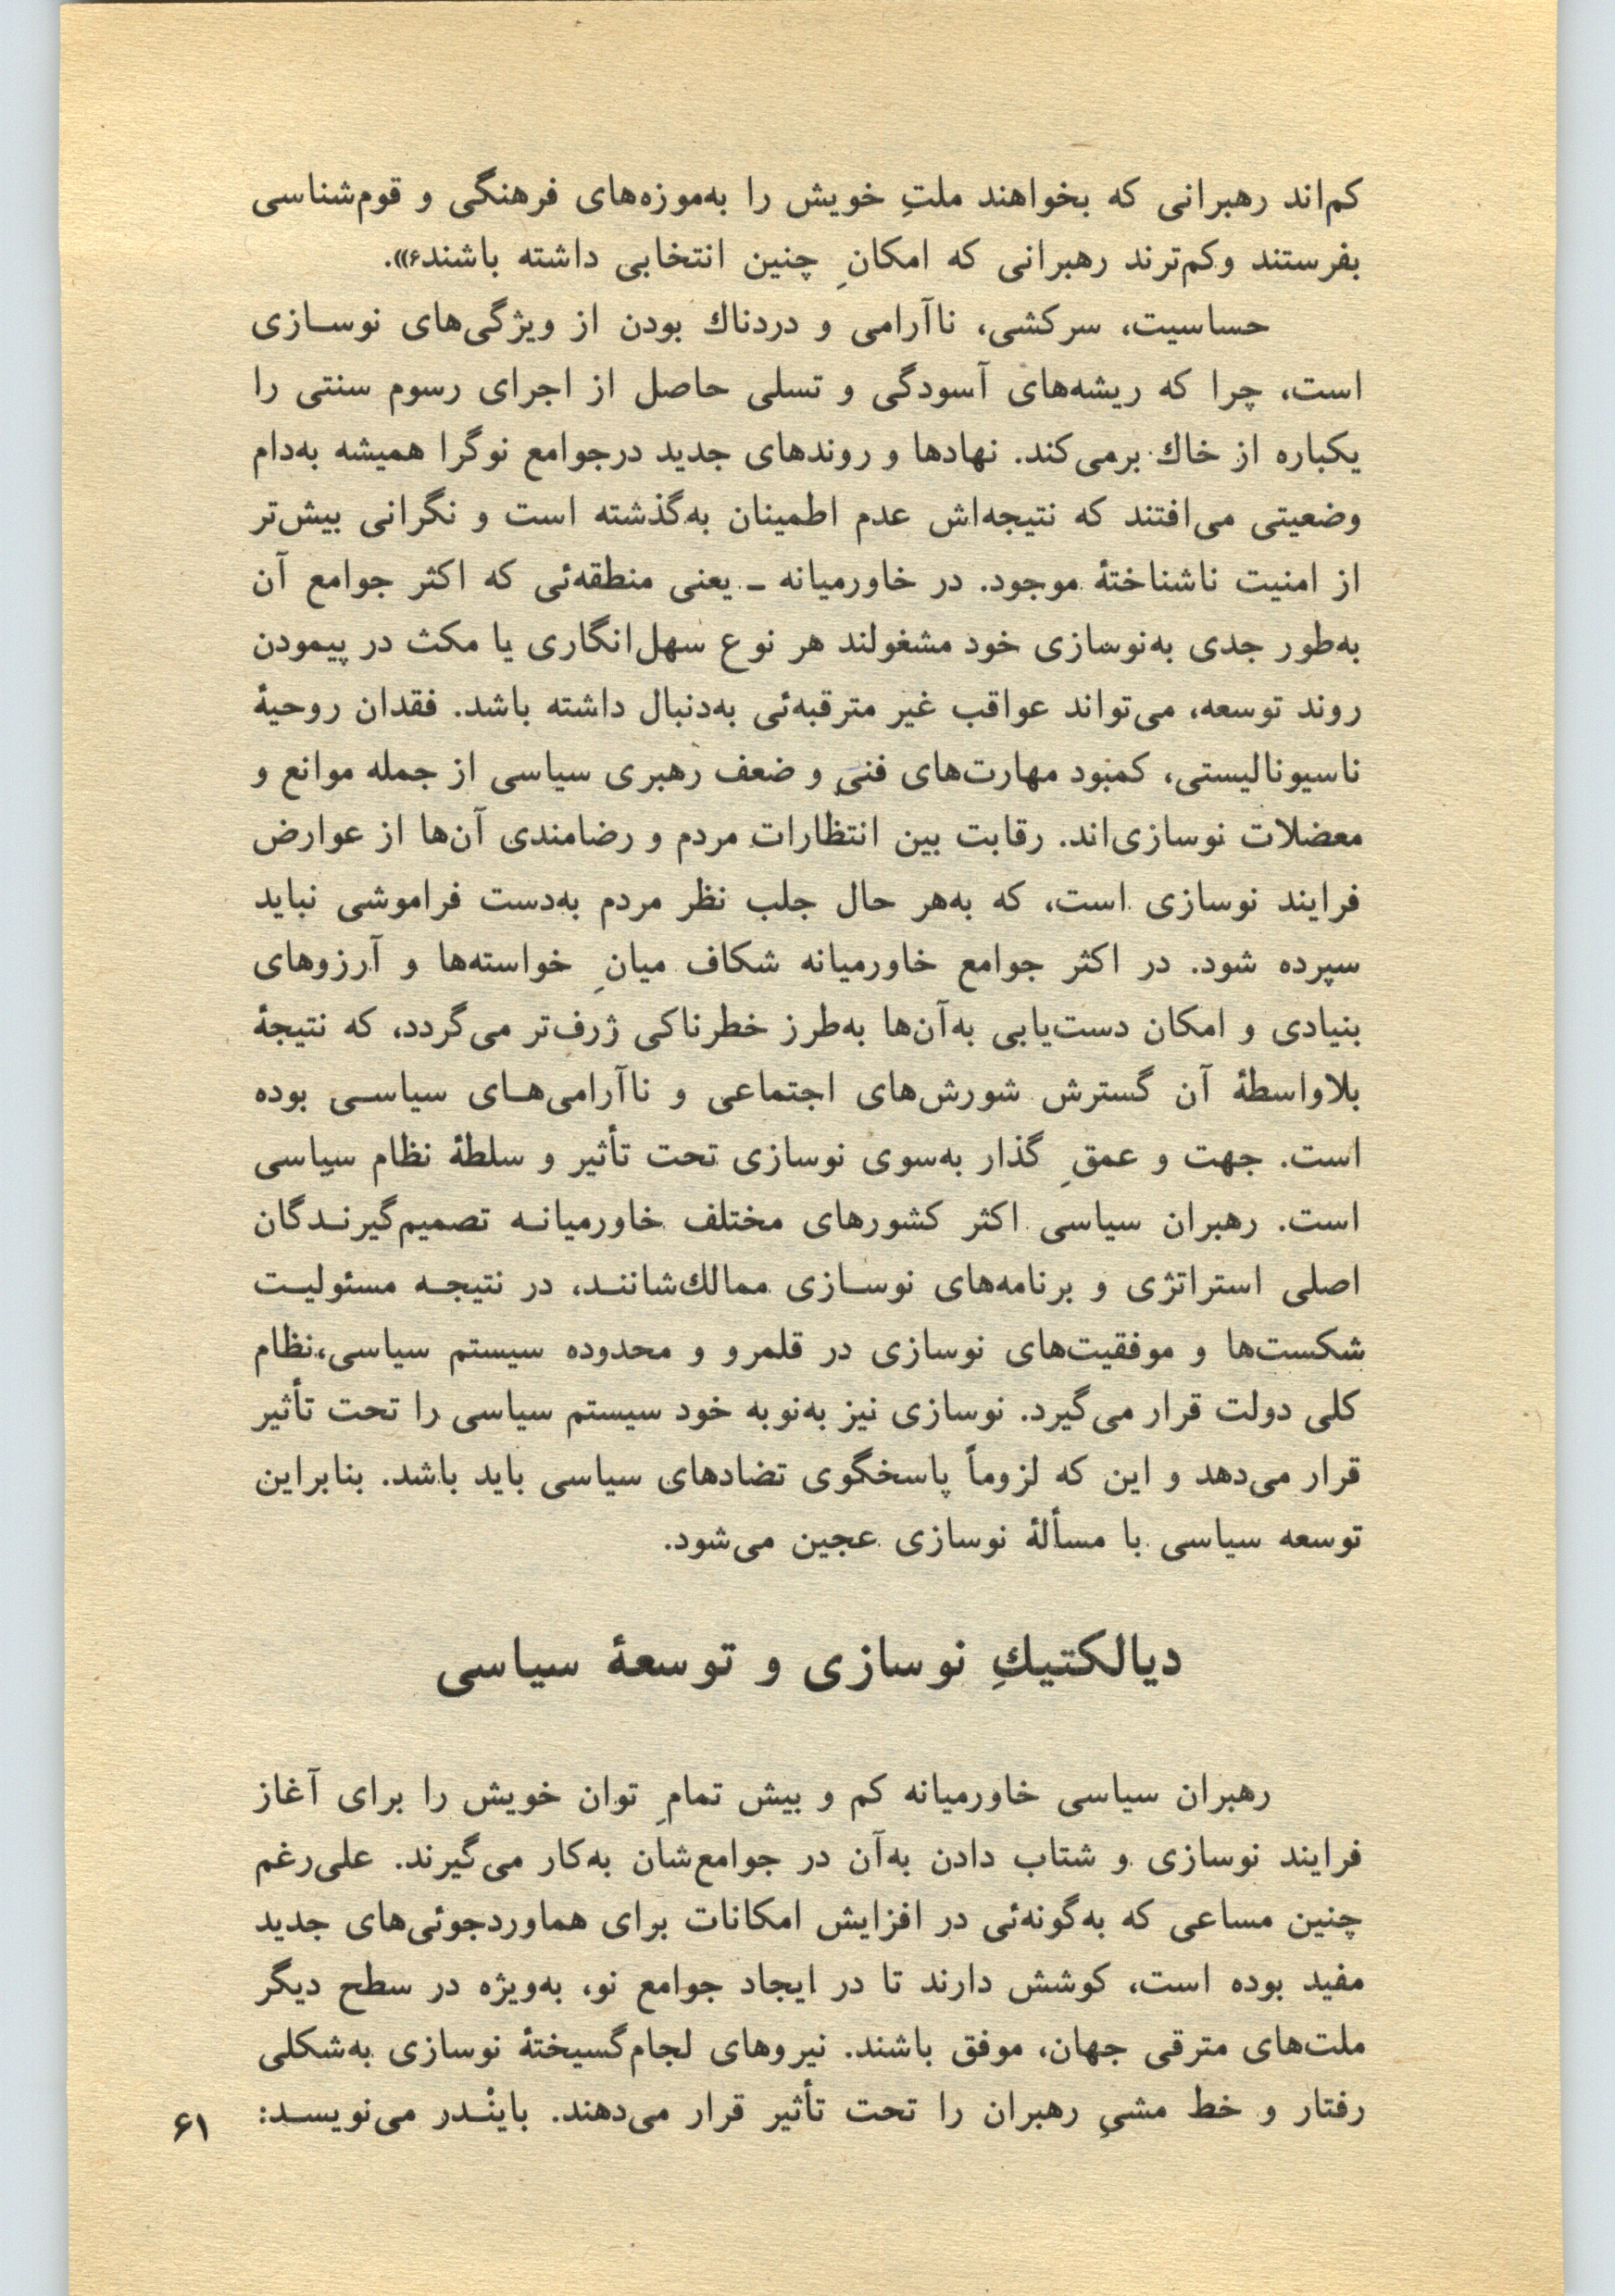 کم‌اند رهبرانی که بخواهند ملتِ خویش را به‌موزه‌های فرهنگی و قوم‌شناسی
بفرستند وکم‌ترند رهبرانی که امکانِ چنین انتخابی داشته باشند۶».
حساسیت، سرکشی، ناآرامی و دردناك بودن از ویژگی‌های نوسـازی
است، چرا که ریشه‌های آسودگی و تسلی حاصل از اجرای رسوم سنتی را
یکباره از خاك برمی‌کند. نهادها و روندهای جدید درجوامع نوگرا همیشه به‌دام
وضعیتی می‌افتند که نتیجه‌اش عدم اطمینان به‌گذشته است و نگرانی بیش‌تر
از امنیت ناشناختهٔ موجود. در خاورمیانه ـ یعنی منطقه‌ئی که اکثر جوامع آن
به‌طور جدی به‌نوسازی خود مشغولند هر نوع سهل‌انگاری یا مکث در پیمودن
روند توسعه، می‌تواند عواقب غیر مترقبه‌ئی به‌دنبال داشته باشد. فقدان روحیهٔ
ناسیونالیستی، کمبود مهارت‌های فنیِ و ضعف رهبری سیاسی از جمله موانع و
معضلات نوسازی‌اند. رقابت بین انتظارات مردم و رضامندی آن‌ها از عوارض
فرایند نوسازی است، که به‌هر حال جلب نظر مردم به‌دست فراموشی نباید
سپرده شود. در اکثر جوامع خاورمیانه شکاف میانِ خواسته‌ها و آرزوهای
بنیادی و امکان دست‌یابی به‌آن‌ها به‌طرز خطرناکی ژرف‌تر می‌گردد، که نتیجهٔ
بلاواسطهٔ آن گسترش شورش‌های اجتماعی و ناآرامی‌هـای سیاسـی بوده
است. جهت و عمقِ گذار به‌سوی نوسازی تحت تأثیر و سلطهٔ نظام سیاسی
است. رهبران سیاسی اکثر کشورهای مختلف خاورمیانـه تصمیم‌گیرنـدگان
اصلی استراتژی و برنامه‌های نوسـازی ممالك‌شاننـد، در نتیجـه مسئولیـت
شکست‌ها و موفقیت‌های نوسازی در قلمرو و محدوده سیستم سیاسی،نظام
کلی دولت قرار می‌گیرد. نوسازی نیز به‌نوبه خود سیستم سیاسی را تحت تأثیر
قرار می‌دهد و این که لزوماً پاسخگوی تضادهای سیاسی باید باشد. بنابراین
توسعه سیاسی با مسألهٔ نوسازی عجین می‌شود.
دیالکتیكِ نوسازی و توسعهٔ سیاسی
رهبران سیاسی خاورمیانه کم و بیش تمامِ توان خویش را برای آغاز
فرایند نوسازی و شتاب دادن به‌آن در جوامع‌شان به‌کار می‌گیرند. علی‌رغم
چنین مساعی که به‌گونه‌ئی در افزایش امکانات برای هماوردجوئی‌های جدید
مفید بوده است، کوشش دارند تا در ایجاد جوامع نو، به‌ویژه در سطح دیگر
ملت‌های مترقی جهان، موفق باشند. نیروهای لجام‌گسیختهٔ نوسازی به‌شکلی
رفتار و خط مشیِ رهبران را تحت تأثیر قرار می‌دهند. باینْـدر می‌نویسـد:
۶۱